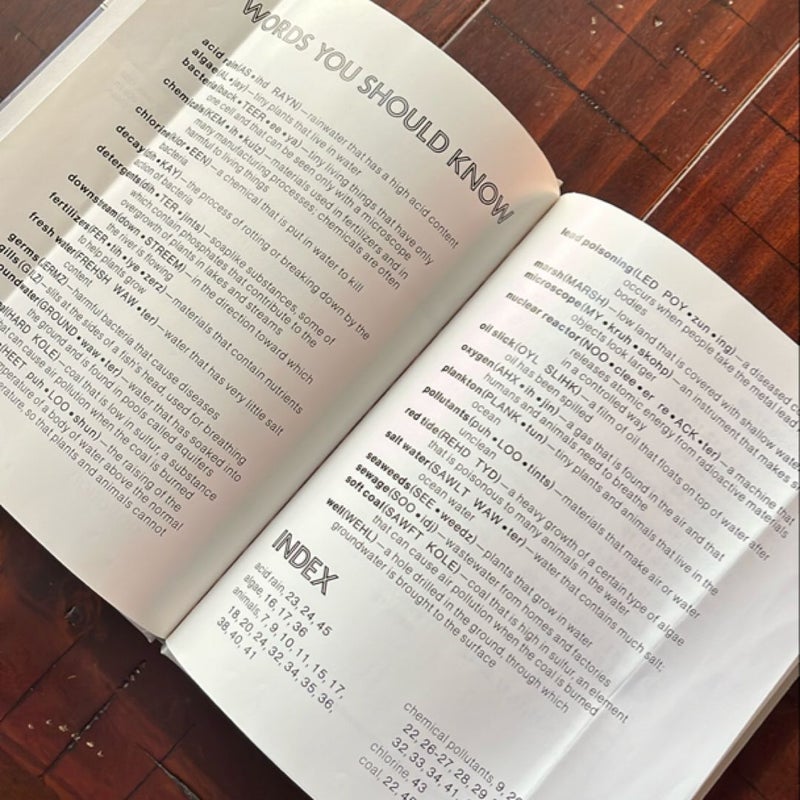 WORDS YOU SHOULD KNOW
acid rain(AS•ihd RAYN)—rainwater that has a high acid content
algae(AL•jay)—tiny plants that live in water
bacteria(back•TEER•ee•ya)—tiny living things that have only
one cell and that can be seen only with a microscope
chemicals(KEM•ih•kulz)—materials used in fertilizers and in
many manufacturing processes; chemicals are often
harmful to living things
chlorine(klor•EEN)—a chemical that is put in water to kill
bacteria
decay(dih•KAY)—the process of rotting or breaking down by the
action of bacteria
detergents(dih•TER•jints)—soaplike substances, some of
which contain phosphates that contribute to the
overgrowth of plants in lakes and streams
downstream(down•STREEM)—in the direction toward which
the river is flowing
fertilizers(FER•tih•lye•zerz)—materials that contain nutrients
to help plants grow
fresh water(FREHSH WAW•ter)—water that has very little salt
content
germs(JERMZ)—harmful bacteria that cause diseases
gills(GILZ)—slits at the sides of a fish's head, used for breathing
(GROUND•waw•ter)—water that has soaked into
the ground and is found in pools called aquifers
(HARD KOLE)—coal that is low in sulfur, a substance
that can cause air pollution when the coal is burned
puh•LOO•shun)—the raising of the
temperature of a body of water above the normal
so that plants and animals cannot
lead poisoning(LED POY•zun•ing)—a diseased
occurs when people take the metal lead
bodies
marsh(MARSH)—low land that is covered with shallow water
microscope(MY•kruh•skohp)—an instrument that makes
objects look larger
nuclear reactor(NOO•clee•er re•ACK•ter)—a machine that
releases atomic energy from radioactive materials
in a controlled way
oil slick(OYL SLIHK)—a film of oil that floats on top of water after
oil has been spilled
oxygen(AHX•ih•jin)—a gas that is found in the air and that
humans and animals need to breathe
plankton(PLANK•tun)—tiny plants and animals that live in the
ocean
pollutants(puh•LOO•tints)—materials that make air or water
unclean
red tide(REHD TYD)—a heavy growth of a certain type of algae
that is poisonous to many animals in the water
salt water(SAWLT WAW•ter)—water that contains much salt;
ocean water
seaweeds(SEE•weedz)—plants that grow in water
sewage(SOO•idj)—wastewater from homes and factories
soft coal(SAWFT KOLE)—coal that is high in sulfur, an element
that can cause air pollution when the coal is burned
well(WEHL)—a hole drilled in the ground, through which
groundwater is brought to the surface
INDEX
acid rain, 23, 24, 45
algae, 16, 17, 36
animals, 7, 9, 10, 11, 15, 17,
18, 20, 24, 32, 34, 35, 36,
38, 40, 41
chemical pollutants, 9,
22, 26-27, 28, 29,
32, 33, 34, 41,
chlorine, 43
coal, 22, 45